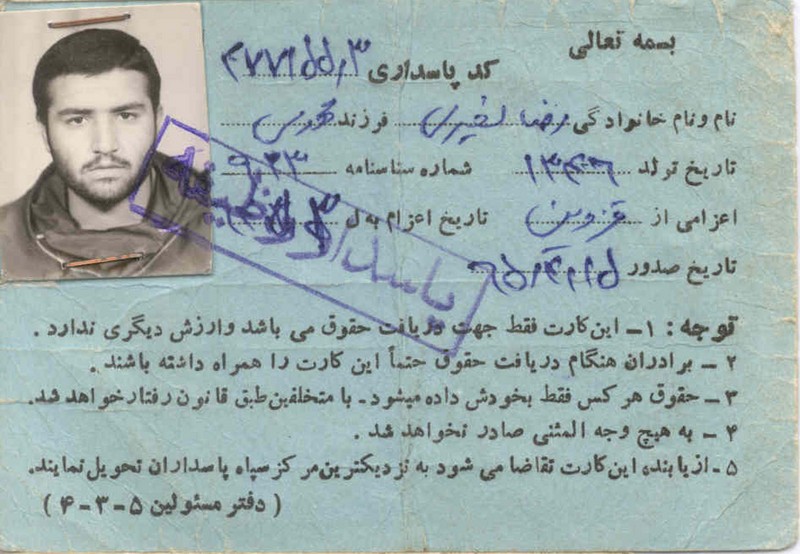 بسمه تعالی
کد پاسداری ۴۷۷۱۵۵/۳
نام و نام خانوادگی رضا نصیری فرزند
تاریخ تولد ۱۳۴۶ شماره شناسنامه ۹۲۳
اعزامی از قزوین تاریخ اعزام به ل
تاریخ صدور
پاسدار وظیفه
توجه : ۱ - این کارت فقط جهت دریافت حقوق می باشد و ارزش دیگری ندارد .
۲ - برادران هنگام دریافت حقوق حتماً این کارت را همراه داشته باشند .
۳ - حقوق هر کس فقط بخودش داده میشود - با متخلفین طبق قانون رفتار خواهد شد.
۴ - به هیچ وجه المثنی صادر نخواهد شد .
۵ - از یابنده این کارت تقاضا می شود به نزدیکترین مرکز سپاه پاسداران تحویل نمایند.
( دفتر مسئولین ۵-۳-۴ )